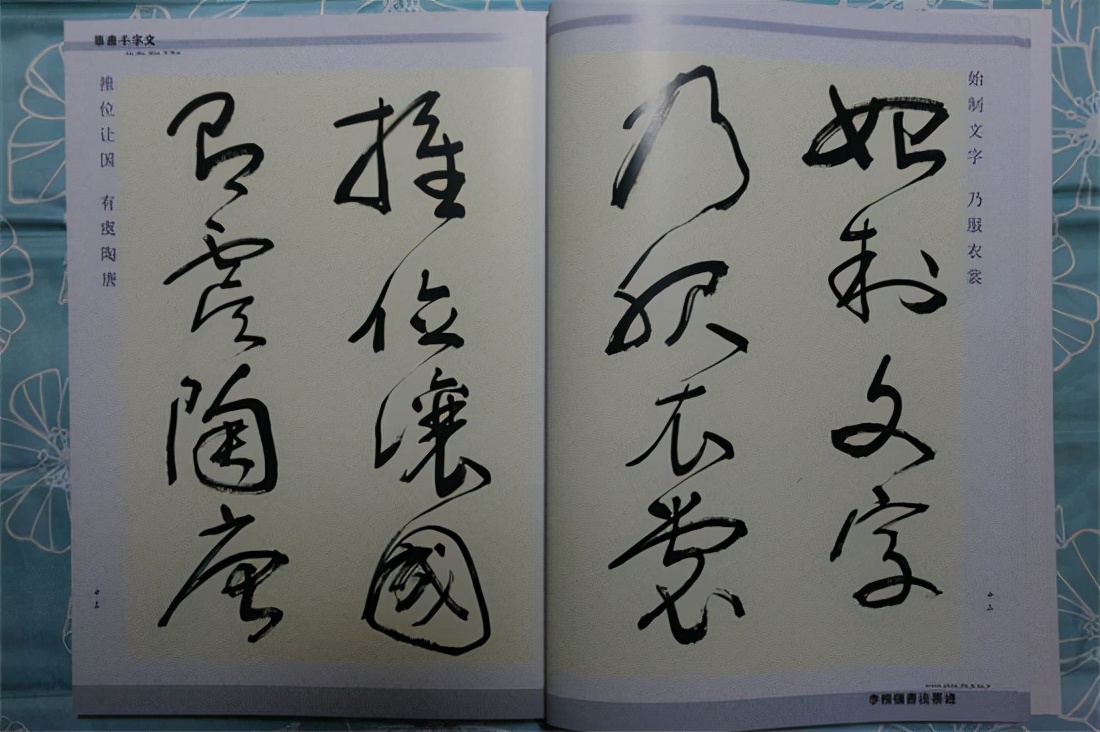 始制文字 乃服衣裳
始制文字
乃服衣裳
草书千字文
推位让国 有虞陶唐
推位讓國
有虞陶唐